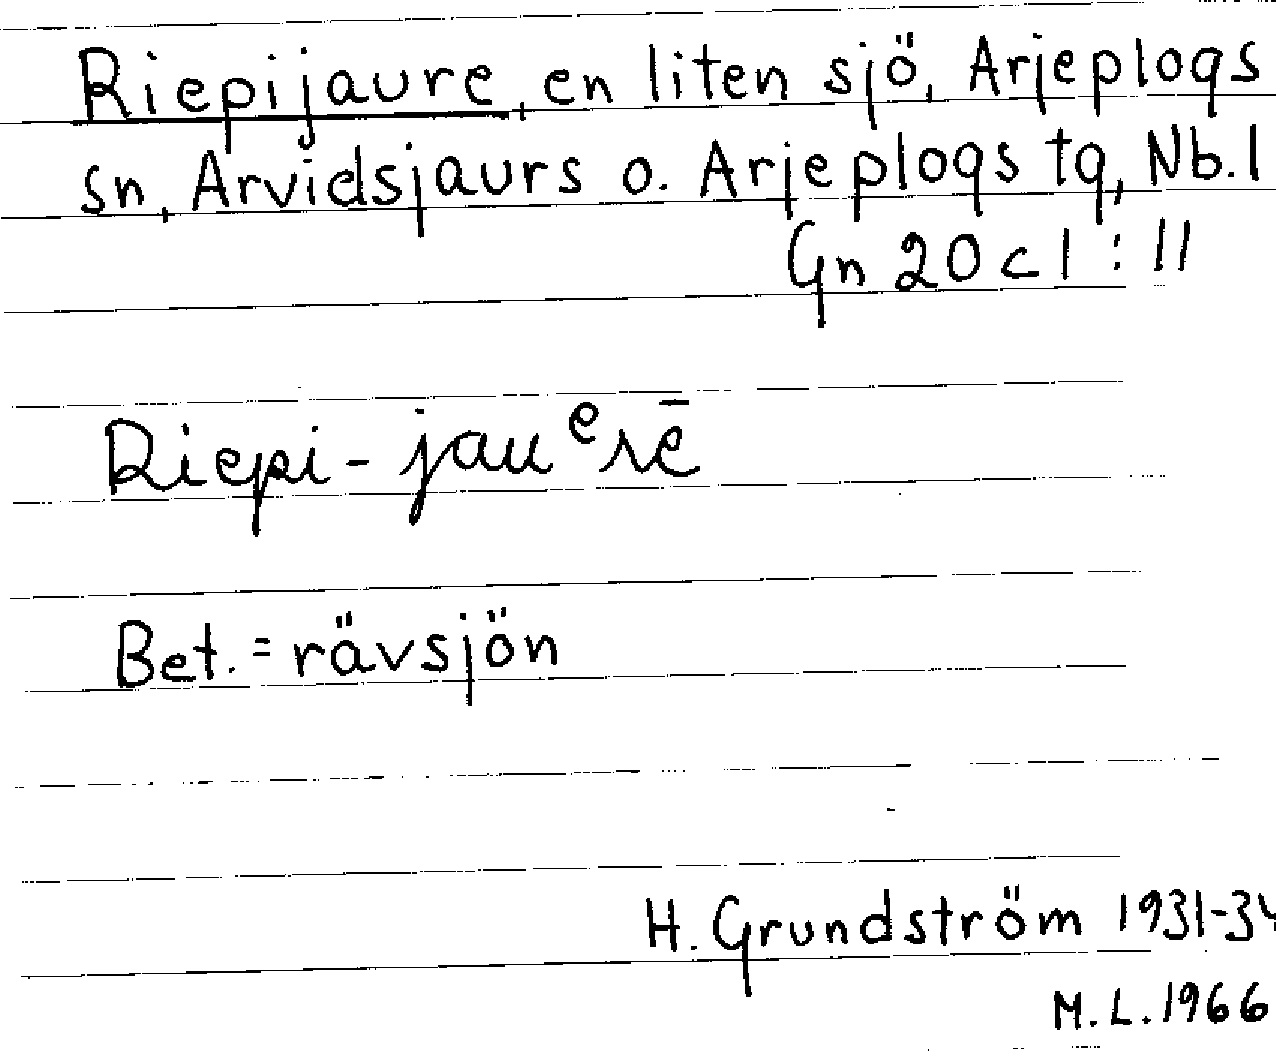 Riepijaure, en liten sjö, Arjeplogs
sn, Arvidsjaurs o. Arjeplogs tg, Nb. l
Gn 20 c 1 : 11
Riepi-jauᵉrē
Bet. = rävsjön
H. Grundström 1931-34
M.L. 1966